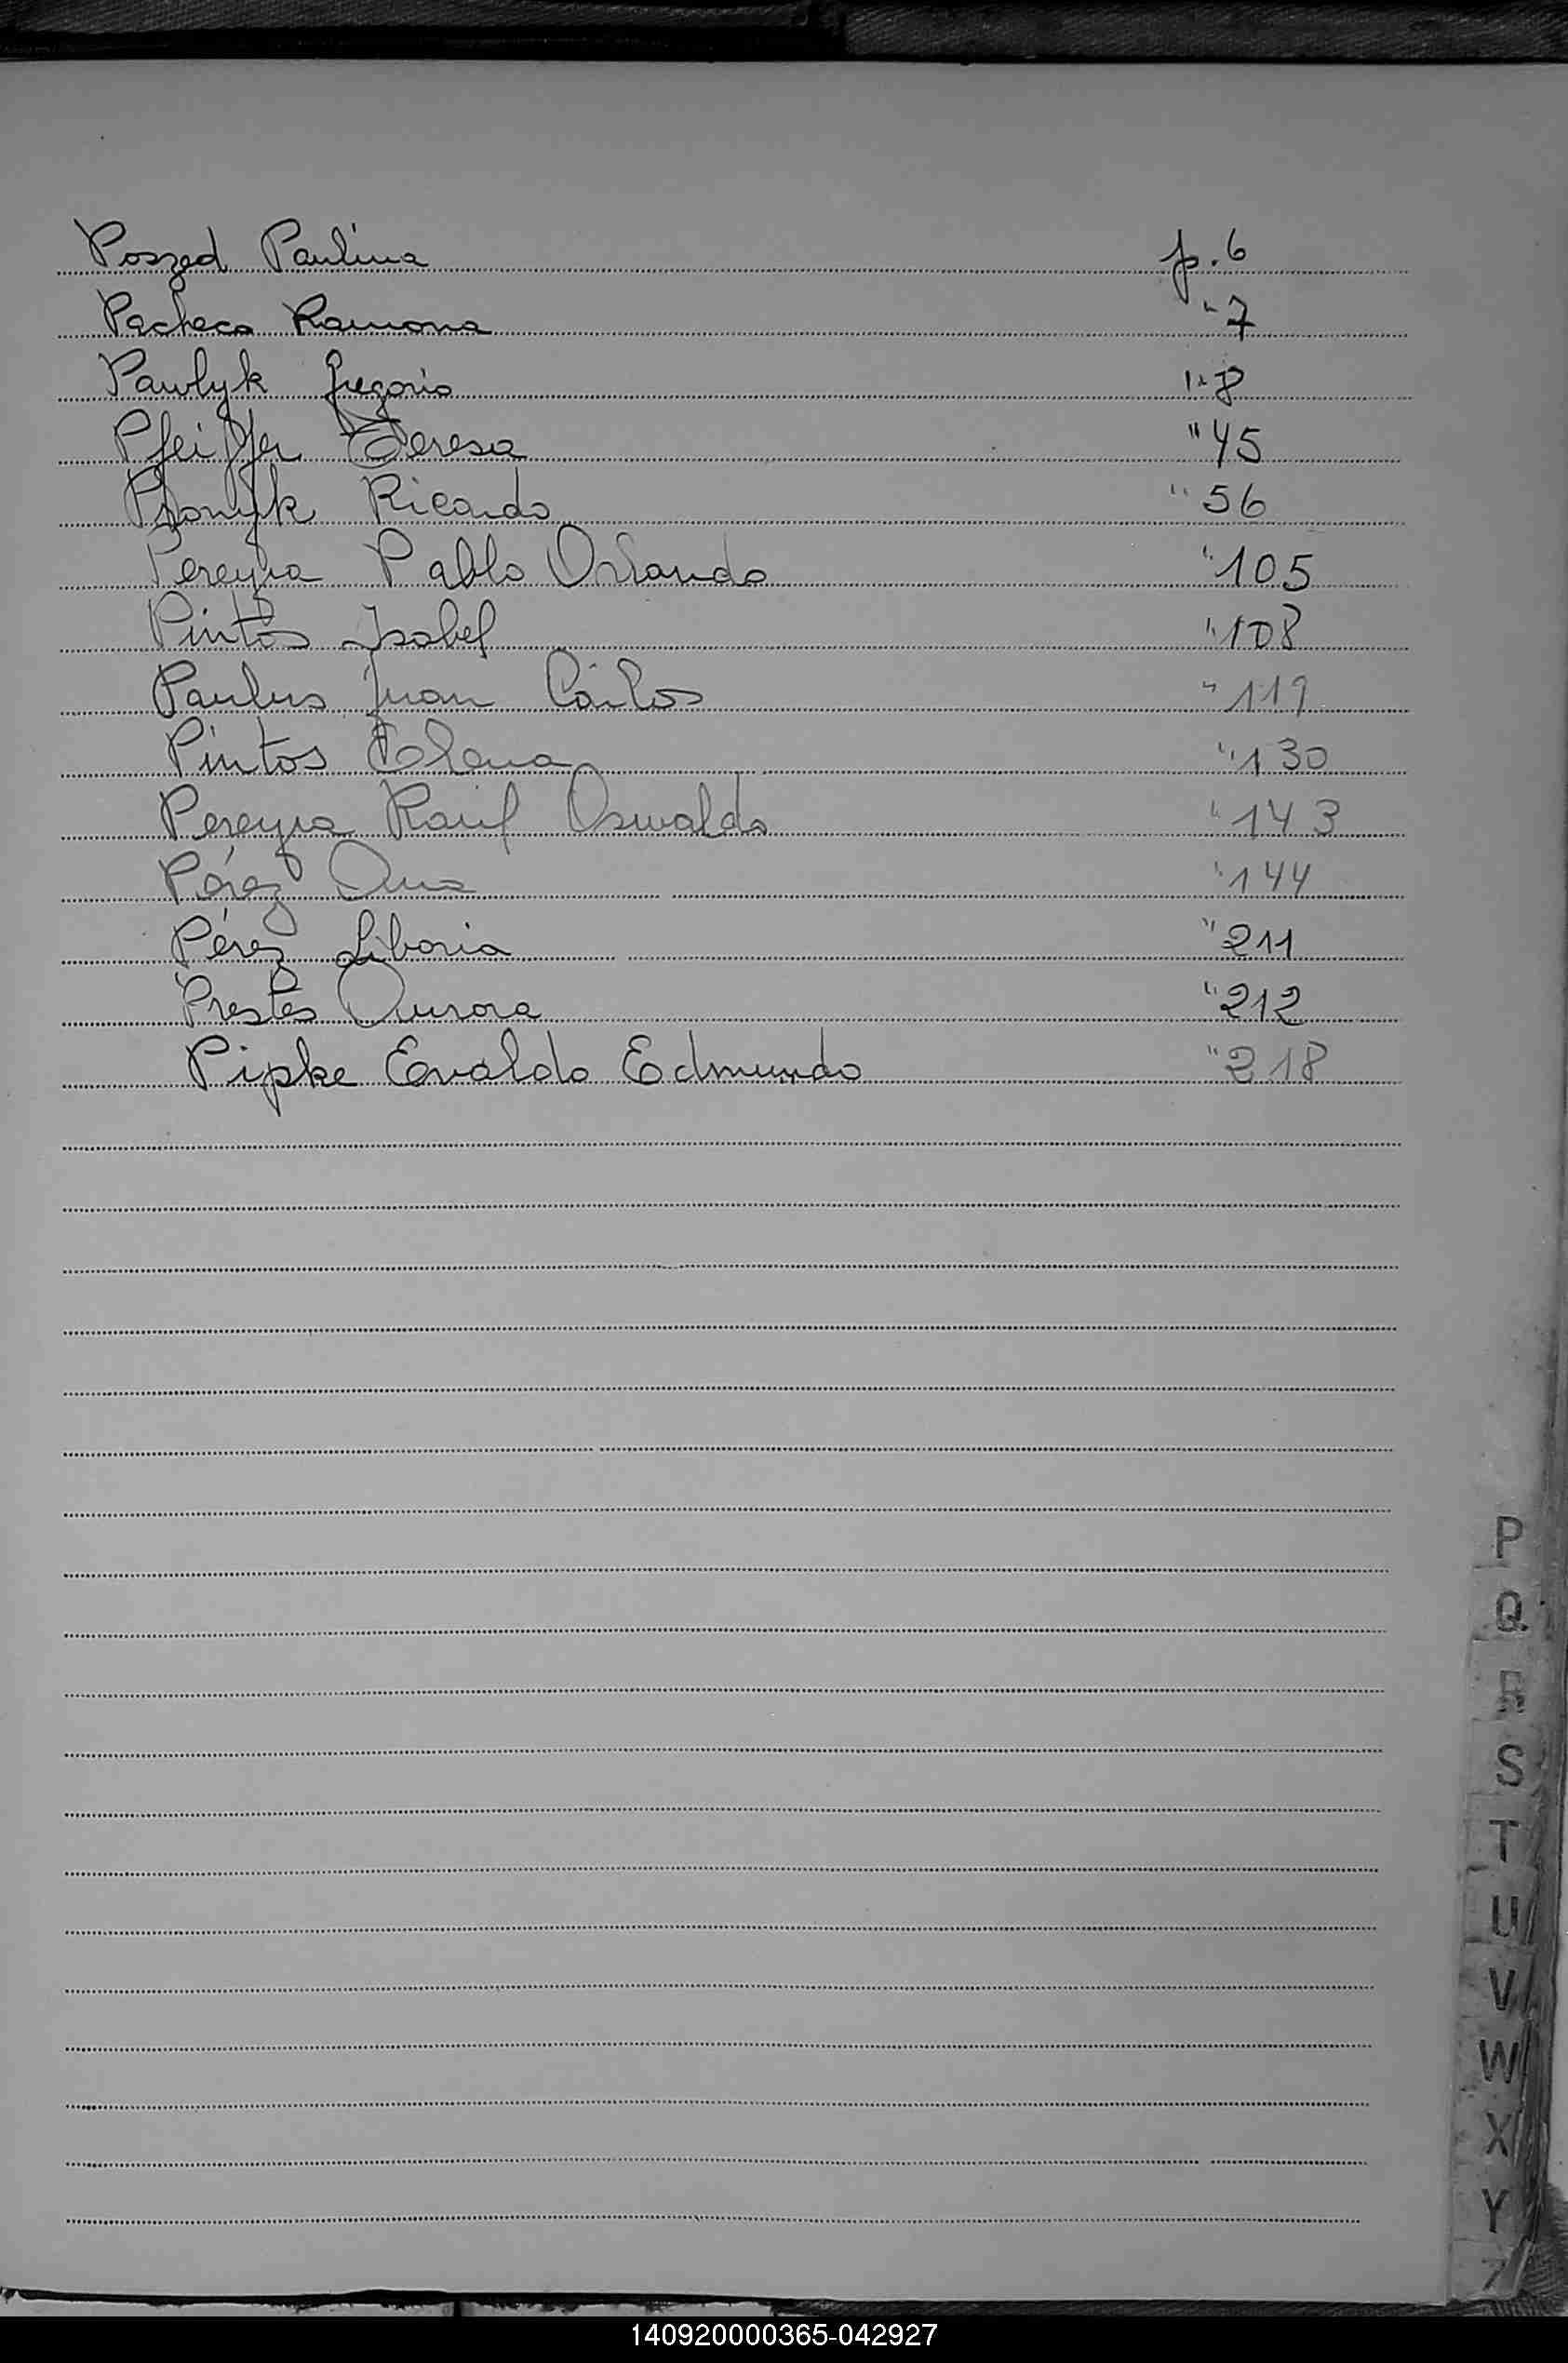 Poszed Paulina p. 6
Pacheco Ramona " 7
Pawlyk Gregorio " 8
Pfeiffer Teresa " 45
Pronyk Ricardo " 56
Pereyra Pablo Orlando " 105
Pintos Isabel " 108
Paulus Juan Carlos " 119
Pintos Elena " 130
Pereyra Raúl Oswaldo " 143
Pérez Ana " 144
Pérez Liboria " 211
Prestes Aurora " 212
Pipke Evaldo Edmundo " 218
P
Q
R
S
T
U
V
W
X
Y
Z
140920000365-042927